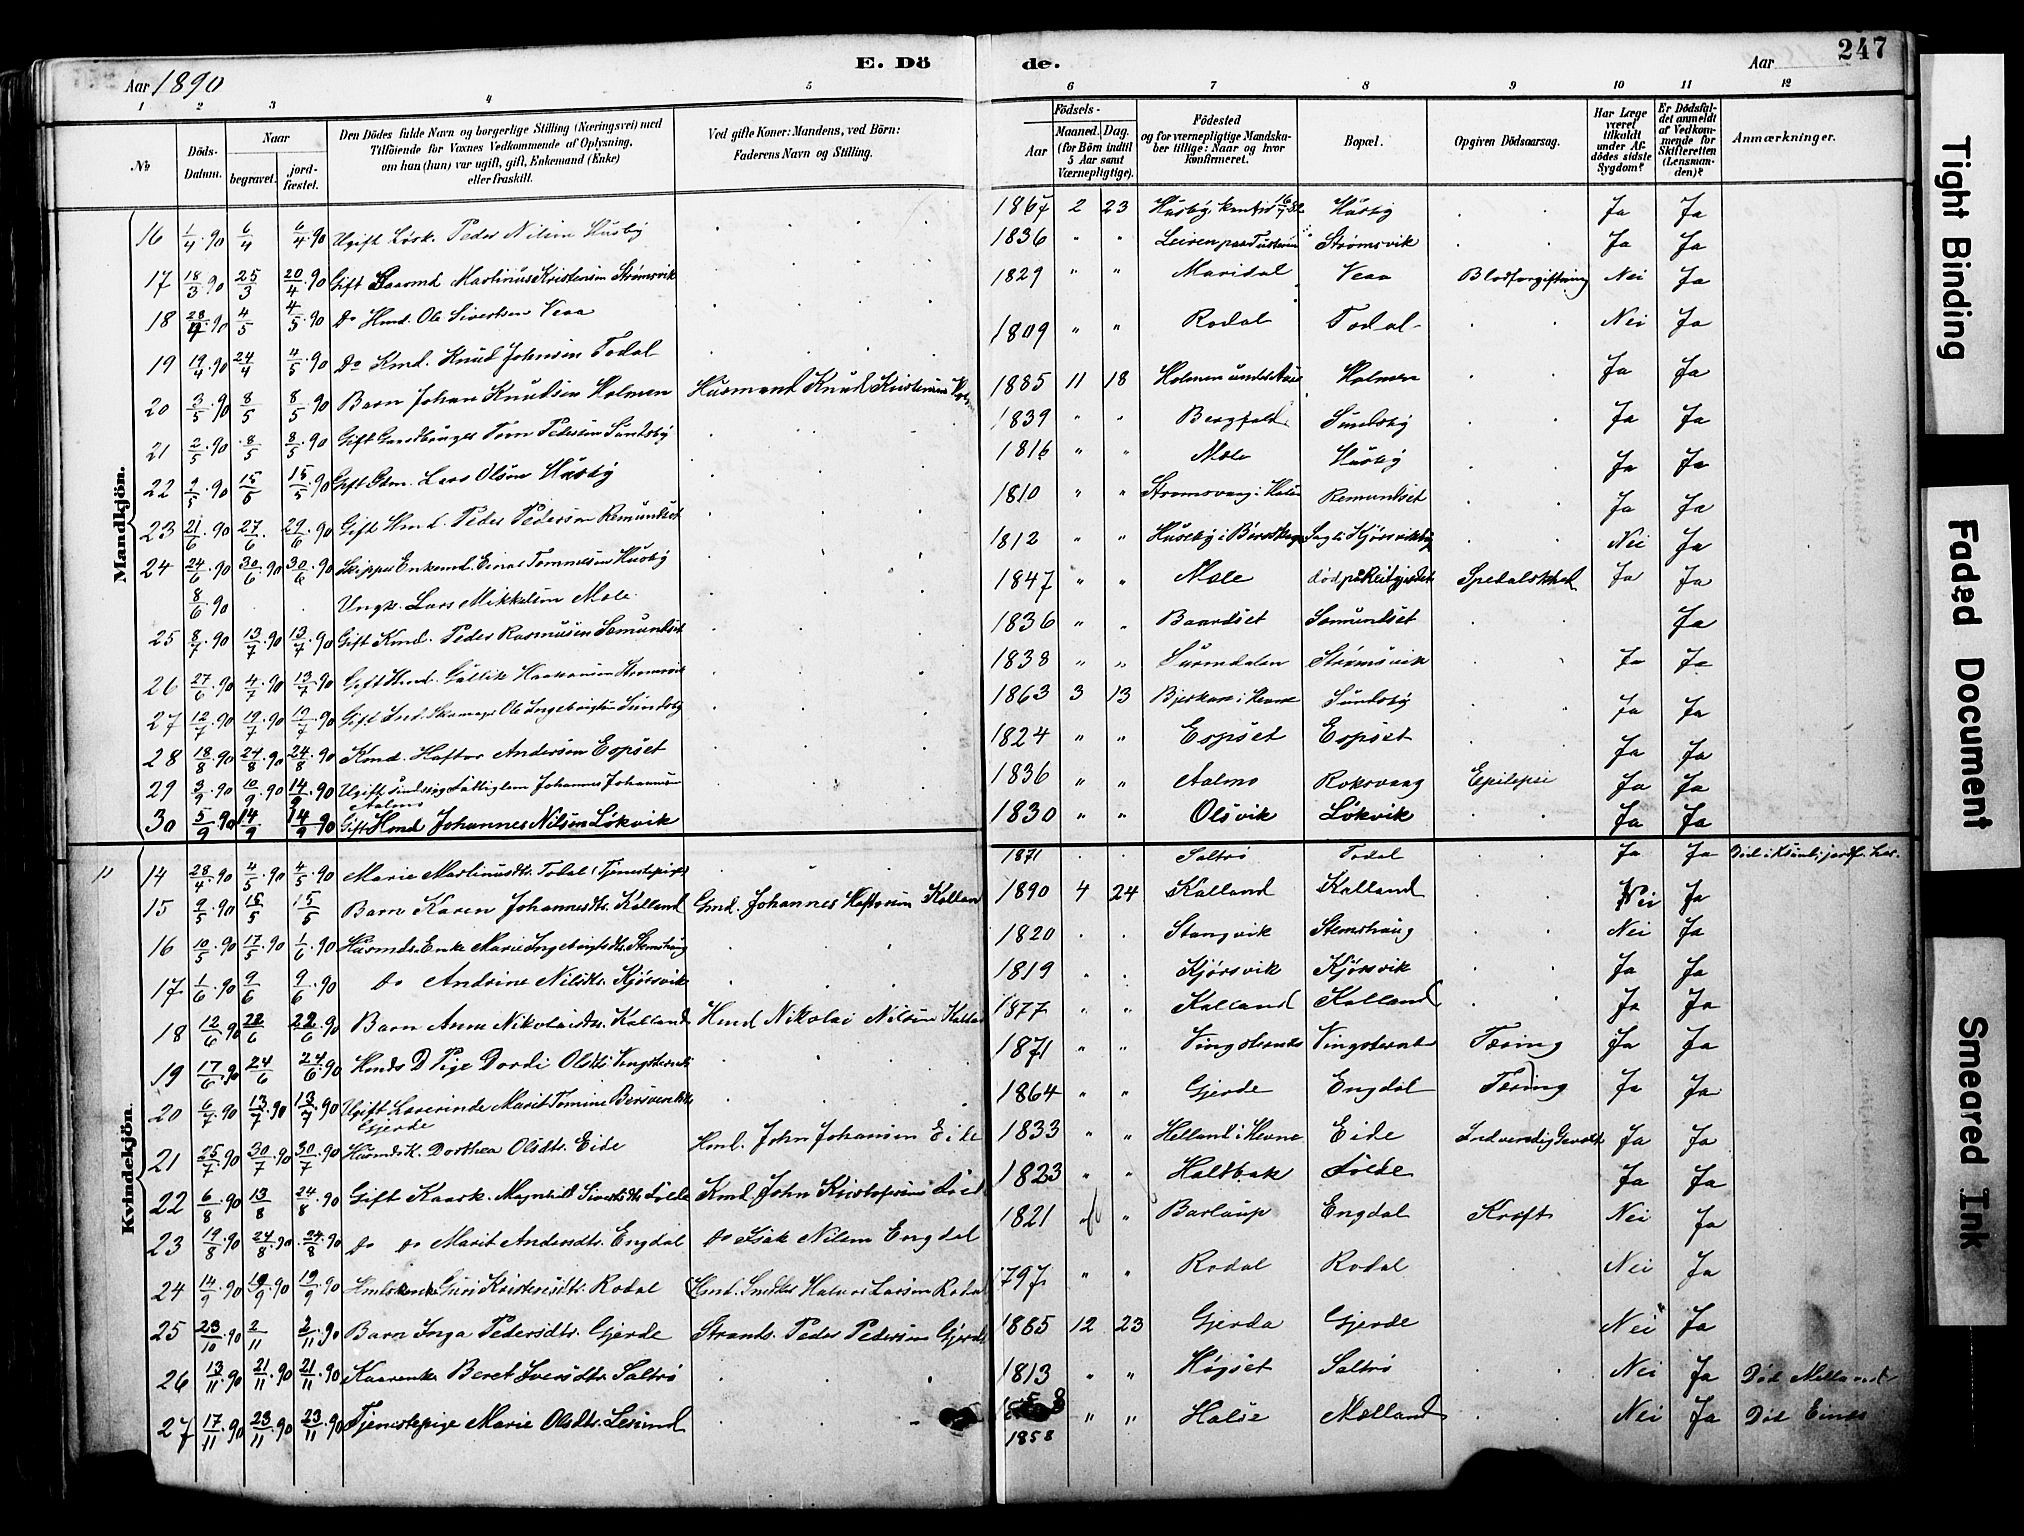 247
E. Dö de.
Aar 1890
Aar
1 2 3 4 5 6 7 8 9 10 11 12
No
Döds-Datum.
Naar
begravet.
jord-fæstet.
Den Dödes fulde Navn og borgerlige Stilling (Næringsvei) med
Tilföiende for Voxnes Vedkommende af Oplysning,
om han (hun) var ugift, gift, Enkemand (Enke)
eller fraskilt.
Ved gifte Koner: Mandens, ved Börn:
Faderens Navn og Stilling.
Födsels-
Aar
Maaned. Dag.
(for Börn indtil
5 Aar samt
Værnepligtige).
Födested
og for værnepligtige Mandska-
ber tillige: Naar og hvor
konfirmeret.
Bopæl.
Opgiven Dödsaarsag.
Har Læge
været
tilkaldt
under Af-
dödes sidste
Sygdom?
Er Dödsfal-
det anmeldt
af Vedkom-
mende for
Skifteretten
(Lensman-
den)?
Anmærkninger.
Mandkjön.
16 1/4 90 6/4 6/4 90 Ugift Løsk. Peder Nilsen Husby 1867 2 23 Husby Husby Ja Ja
17 18/3 90 25/3 20/4 90 Gift Gaarmd Martinus Kristensen Strømsvik 1836 " " Leiren paa Tusteren Strømsvik Ja Ja
18 28/4 90 4/5 4/5 90 Do Hmd. Ole Sivertsen Veaa 1829 " " Maridal Veaa Blodforgiftning Nei Ja
19 19/4 90 24/4 4/5 90 Do Kmd. Knud Johnsen Todal 1809 " " Rodal Todal Nei Ja
20 3/5 90 8/5 8/5 90 Barn Johan Knudsen Holmen Husmand Knud Kristensen 1885 11 18 Holmen under Aure Holmen Ja Ja
21 2/5 90 8/5 8/5 90 Gift Gaardbruger Tøm Pedersen Sundsby 1839 " " Bergfald Sundsby Ja Ja
22 9/5 90 15/5 15/5 90 Gift Gdm. Lars Olsen Husby 1816 " " Mele Husby Ja Ja
23 21/6 90 27/6 29/6 90 Gift Hmd. Peder Pedersen Remundset 1810 " " Strømsvaag i Halse Remundset Ja Ja
24 24/6 90 30/6 90 30/6 90 Skipper Enkemd. Einar Tommesen Husby 1812 " " Nei Ja
8/6 90 Ungk. Lars Mikkelsen Mele 1847 " " Mele død på Reitgjerdet Spedalskhed Ja Ja
25 8/7 90 13/7 90 13/7 90 Gift Kmd. Peder Rasmusen Semundset 1836 " " Baardset Semundset Ja
26 27/6 90 4/7 90 13/7 90 Gift Hmd. Gullik Haakansen Strømsvik 1838 " " Surendalen Strømsvik Ja Ja
27 12/7 90 19/7 90 19/7 90 Gift Ind. Skomager Ole Ingebrigtsen Sundsby 1863 3 13 Sundsby Ja Ja
28 18/8 90 24/8 90 24/8 90 Kmd. Haftor Andersen Espset 1824 " " Espset Espset Ja Ja
29 3/9 90 10/9 90 14/9 90 Ugift sindssyg Fattiglem Johannes Johannesen Aalmo 1836 " " Aalmo Roksvaag Epilepsi Ja Ja
30 5/9 90 14/9 14/9 90 Gift Hmd. Johannes Nilsen Løkvik 1830 " " Olsvik Løkvik Ja Ja
Kvindekjön.
14 28/4 90 4/5 90 4/5 90 Marie Martinusdtr. Todal Tjenestepige 1871 Saltrø Todal Ja Ja
15 9/5 90 15/5 15/5 Barn Karen Johannesdtr. Kalland Gmd. Johannes Haftorsen Kalland 1890 4 24 Kalland Kalland Nei Ja
16 10/5 90 17/5 90 1/6 90 Husmds. Enke Marie Ingebrigtsdtr. Stemshaug 1820 Stangvik Stemshaug Nei Ja
17 1/6 90 9/6 9/6 90 Do Andrine Nilsdtr. Kjørsvik 1819 Kjørsvik Kjørsvik Ja Ja
18 12/6 90 22/6 22/6 90 Barn Anne Nikolaidtr. Kalland Hmd Nikolai Nilsen Kalland 1877 " " Kalland Kalland Ja Ja
19 17/6 90 24/6 24/6 90 Hmds D Pige Dordi Olsdtr. 1871 " " Tæring Ja Ja
20 6/7 90 13/7 90 13/7 90 Ugift Lærerinde Marit Tomine Bersvendsdtr. Gjerde 1864 " " Gjerde Engdal Tæring Ja Ja
21 25/7 90 30/7 90 30/7 90 Husmds K. Dorthea Olsdtr. Eide Hmd. John Johansen Eide 1833 " " Helland i Hevne Eide Indvendig Ja Ja
22 6/8 90 13/8 24/8 90 Gift Kaark. Magnhild Sivertsdtr. Kmd. John Kristofersen 1823 " " Ja Ja
23 19/8 90 24/8 90 24/8 90 Do Do Marit Andersdtr. Engdal Do Isak Nilsen Engdal 1821 " " Engdal Kræft Nei Ja
24 14/9 90 19/9 90 19/9 90 Guri Kristensdtr. Rodal Hmd. Smed Halvor Larsen Rodal 1797 " " Rodal Rodal Nei Ja
25 23/10 90 2/11 2/11 90 Barn Inga Pedersdtr. Gjerde Strands. Peder Pedersen Gjerde 1885 12 23 Gjerde Gjerde Nei Ja
26 13/11 90 21/11 90 21/11 90 Kaarenke Beret Iversdtr. Saltrø 1813 " " Høgset Saltrø Nei Ja Død Melland
27 17/11 90 23/11 90 23/11 90 Tjenestepige Marie Olsdtr. Lesund 1858 " " Halse Melland Nei Ja Død
Tight Binding
Faded Document
Smeared Ink